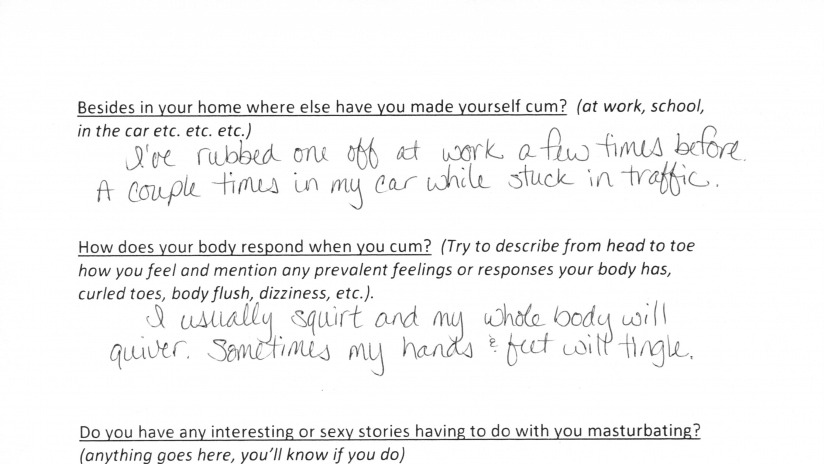 Besides in your home where else have you made yourself cum? (at work, school,
in the car etc. etc. etc.)
I've rubbed one off at work a few times before.
A couple times in my car while stuck in traffic.
How does your body respond when you cum? (Try to describe from head to toe
how you feel and mention any prevalent feelings or responses your body has,
curled toes, body flush, dizziness, etc.).
I usually squirt and my whole body will
quiver. Sometimes my hands & feet will tingle.
Do you have any interesting or sexy stories having to do with you masturbating?
(anything goes here, you'll know if you do)